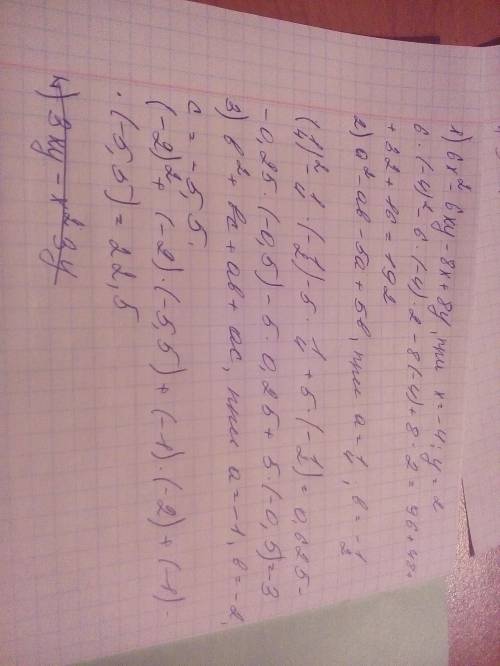 1) 6x² - 6xy - 8x + 8y, при x = -4; y = 2
6·(-4)² - 6·(-4)·2 - 8(-4) + 8·2 = 96 + 48 +
+ 32 + 16 = 192
2) a² - ab - 5a + 5b, при a = 1/4, b = -1/2
(1/4)² - 1/4·(-1/2) - 5·1/4 + 5·(-1/2) = 0,625 -
- 0,25·(-0,5) - 5·0,25 + 5·(-0,5) = -3
3) b² + bc + ab + ac, при a = -1, b = -2,
c = -5,5.
(-2)² + (-2)·(-5,5) + (-1)·(-2) + (-1)·
·(-5,5) = 22,5
4) 3xy - x² 3y